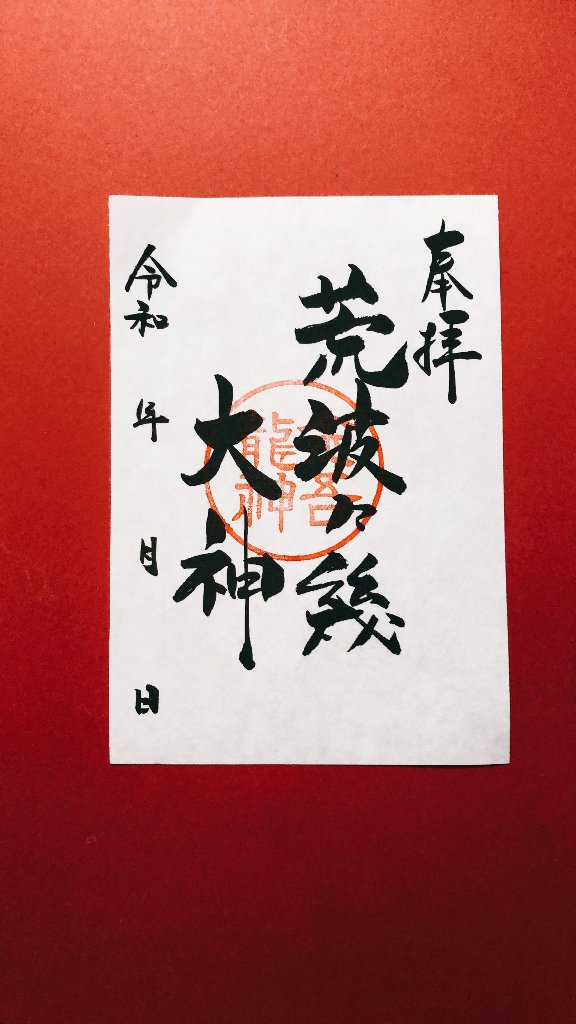 奉拝
荒波々幾
大神
令和 年 月 日
吾
龍神